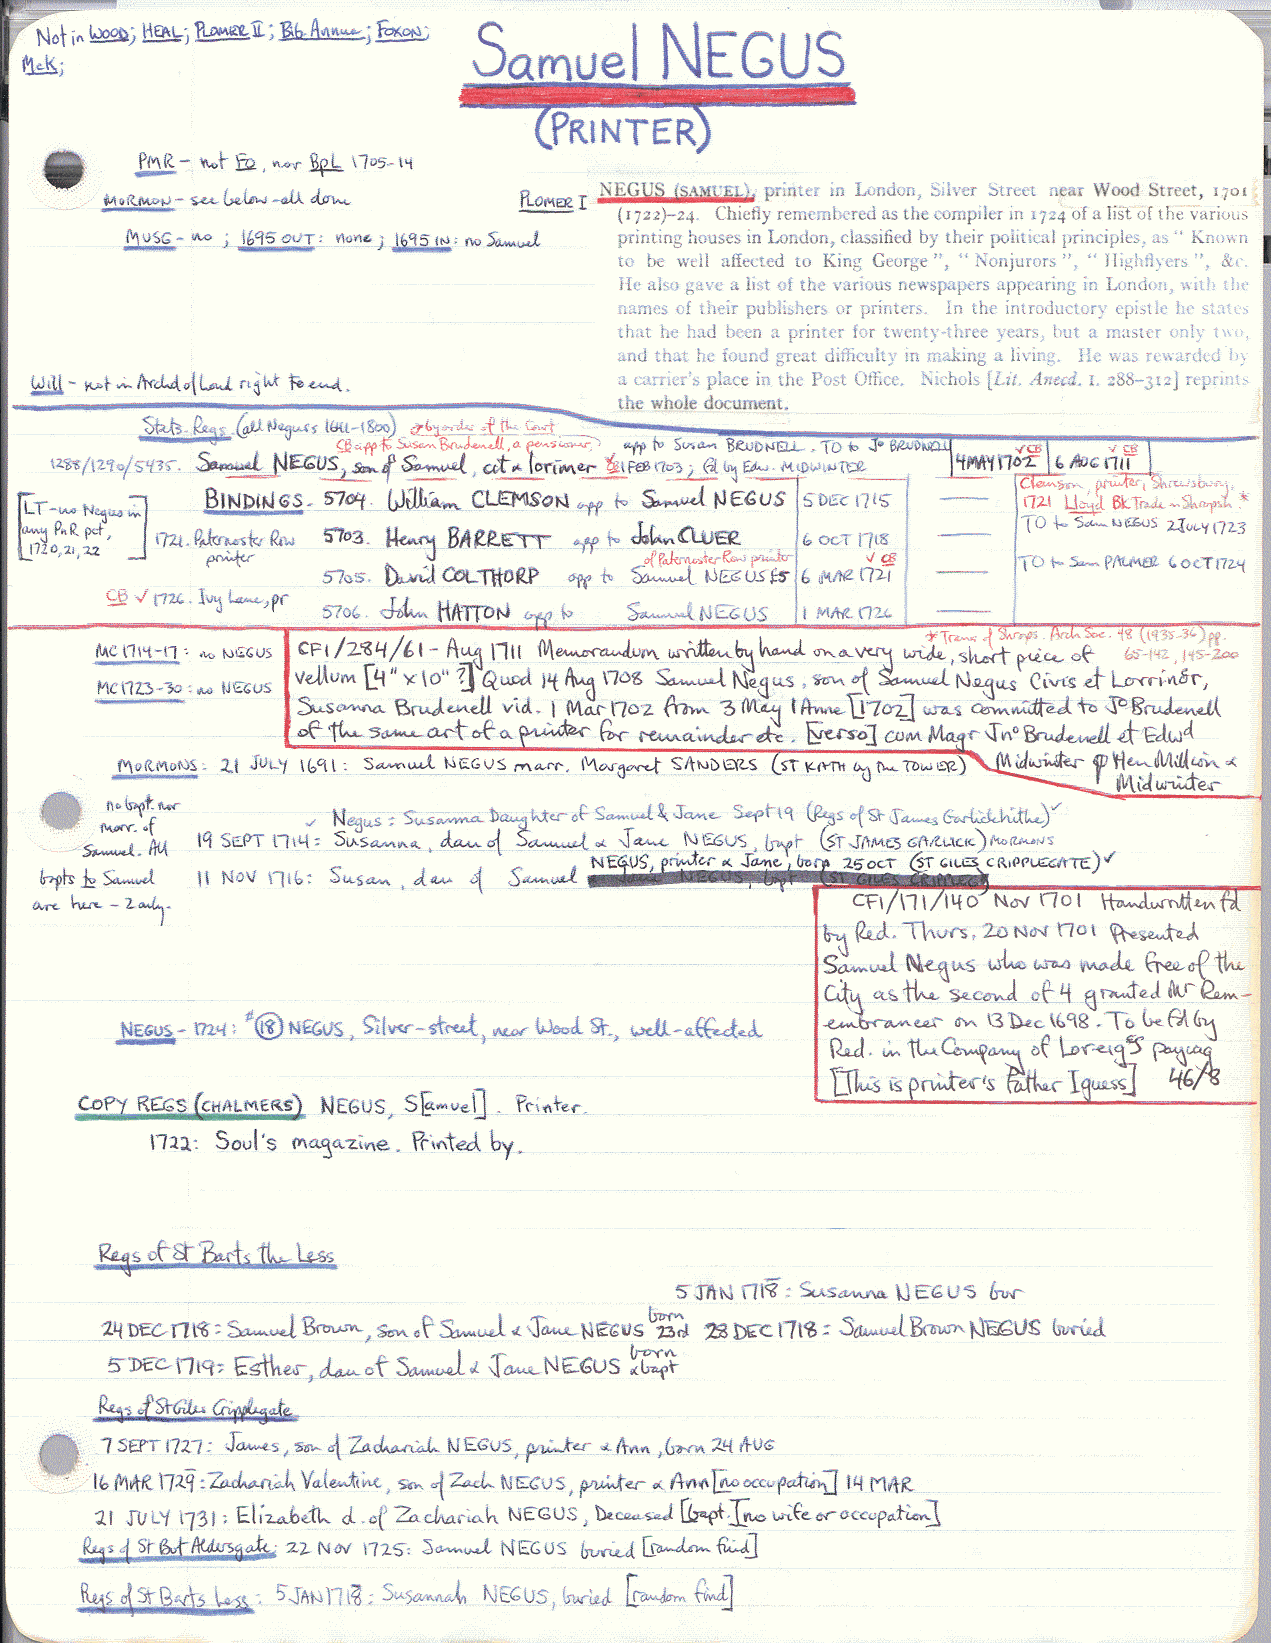 Not in WOOD; HEAL; PLOMER II; Bib. Annuae; FOXON;
McK;
Samuel NEGUS
(PRINTER)
PMR - not Fo, nor BpL 1705-14
MORMON - see below - all done
MUSG - no ; 1695 OUT: none; 1695 IN: no Samuel
PLOMER I
NEGUS (SAMUEL), printer in London, Silver Street near Wood Street, 1701
(1722)-24. Chiefly remembered as the compiler in 1724 of a list of the various
printing houses in London, classified by their political principles, as " Known
to be well affected to King George ", " Nonjurors ", " Highflyers ", &c.
He also gave a list of the various newspapers appearing in London, with the
names of their publishers or printers. In the introductory epistle he states
that he had been a printer for twenty-three years, but a master only two,
and that he found great difficulty in making a living. He was rewarded by
a carrier's place in the Post Office. Nichols [Lit. Anecd. I. 288-312] reprints
the whole document.
Will - not in Archd of Lond right to end.
Stats. Regs. (all Neguses 1641-1800) by order of the Court
CB app to Susan Brudenell, a pensioner, app to Susan BRUDNELL. TO to Jº BRUDNELL
1288/1290/5435. Samuel NEGUS, son of Samuel, cit & lorimer 1 FEB 1703; fd by Edw. MIDWINTER 4 MAY 1702 CB 6 AUG 1711 CB
[LT - no Negus in any PnR pct, 1720, 21, 22]
BINDINGS. 5704. William CLEMSON app to Samuel NEGUS 5 DEC 1715
Clemson, printer, Shrewsbury, 1721 Lloyd Bk Trade in Shropsh. *
TO to Sam NEGUS 2 JULY 1723
1721. Paternoster Row printer
5703. Henry BARRETT app to John CLUER 6 OCT 1718
of Paternoster Row printer ✓ CB
5705. David COLTHORP app to Samuel NEGUS £5 6 MAR 1721 TO to Sam PALMER 6 OCT 1724
CB ✓ 1726. Ivy Lane, pr
5706. John HATTON app to Samuel NEGUS 1 MAR 1726
* Trans of Shrops. Arch Soc. 48 (1935-36) pp. 65-142, 145-200
MC 1714-17: no NEGUS
MC 1723-30: no NEGUS
CF1/284/61 - Aug 1711 Memorandum written by hand on a very wide, short piece of
vellum [4" x 10" ?] Quod 14 Aug 1708 Samuel Negus, son of Samuel Negus Civis et Lorrinér,
Susanna Brudenell vid. 1 Mar 1702 from 3 May 1 Anne [1702] was committed to Jº Brudenell
of the same art of a printer for remainder etc. [verso] cum Magr Jnº Brudenell et Edwd
Midwinter Hen Million &
Midwinter
MORMONS: 21 JULY 1691: Samuel NEGUS marr. Margaret SANDERS (ST KATH by the TOWER)
no bapt. nor
marr. of
Samuel. All
bapts to Samuel
are here - 2 only.
✓ Negus: Susanna Daughter of Samuel & Jane Sept 19 (Regs of St James Garlickhithe) ✓
19 SEPT 1714: Susanna, dau of Samuel & Jane NEGUS, bapt (ST JAMES GARLICK) MORMONS
11 NOV 1716: Susan, dau of Samuel NEGUS, printer & Jane, born 25 OCT (ST GILES CRIPPLEGATE) ✓
CF1/171/140 Nov 1701 Handwritten fd
by Red. Thurs. 20 Nov 1701 Presented
Samuel Negus who was made free of the
City as the second of 4 granted Mr Rem-
embrancer on 13 Dec 1698. To be fd by
Red. in the Company of paying
[This is printer's Father I guess] 46/8
NEGUS - 1724: #(18) NEGUS, Silver-street, near Wood St., well-affected
COPY REGS (CHALMERS) NEGUS, S[amuel]. Printer.
1722: Soul's magazine. Printed by.
Regs of St Barts the Less
5 JAN 1718: Susanna NEGUS bur
24 DEC 1718: Samuel Brown, son of Samuel & Jane NEGUS born 23rd 28 DEC 1718: Samuel Brown NEGUS buried
5 DEC 1719: Esther, dau of Samuel & Jane NEGUS born & bapt
Regs of St Giles Cripplegate
7 SEPT 1727: James, son of Zachariah NEGUS, printer & Ann, born 24 AUG
16 MAR 1729: Zachariah Valentine, son of Zach NEGUS, printer & Ann [no occupation] 14 MAR
21 JULY 1731: Elizabeth d. of Zachariah NEGUS, Deceased [bapt.] [no wife or occupation]
Regs of St Bot Aldersgate: 22 NOV 1725: Samuel NEGUS buried [random find]
Regs of St Barts Less: 5 JAN 1718: Susannah NEGUS, buried [random find]